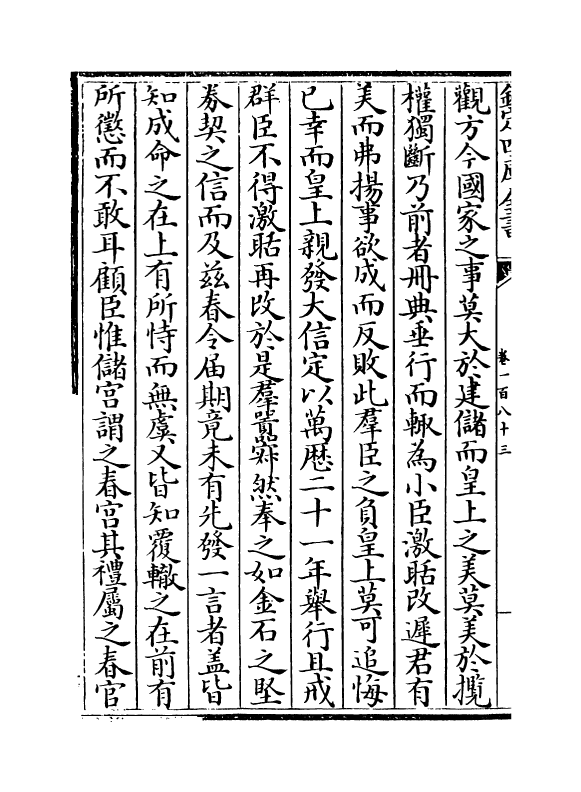 欽定四庫全書
卷一百八十三
觀方今國家之事莫大於建儲而皇上之美莫美於攬
權獨斷乃前者冊典垂行而輙為小臣激聒改遲君有
美而弗揚事欲成而反敗此羣臣之負皇上莫可追悔
已幸而皇上親發大信定以萬厯二十一年舉行且戒
群臣不得激聒再改於是羣囂寂然奉之如金石之堅
券契之信而及兹春令届期竟未有先發一言者盖皆
知成命之在上有所恃而無虞又皆知覆轍之在前有
所懲而不敢耳顧臣惟儲宫謂之春宫其禮屬之春官